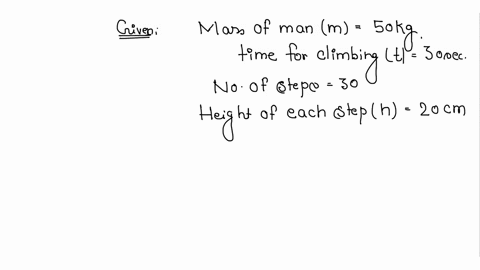 Given: Mass of man (m) = 50kg.
time for climbing (t) = 30sec.
No. of steps = 30
Height of each step (h) = 20 cm